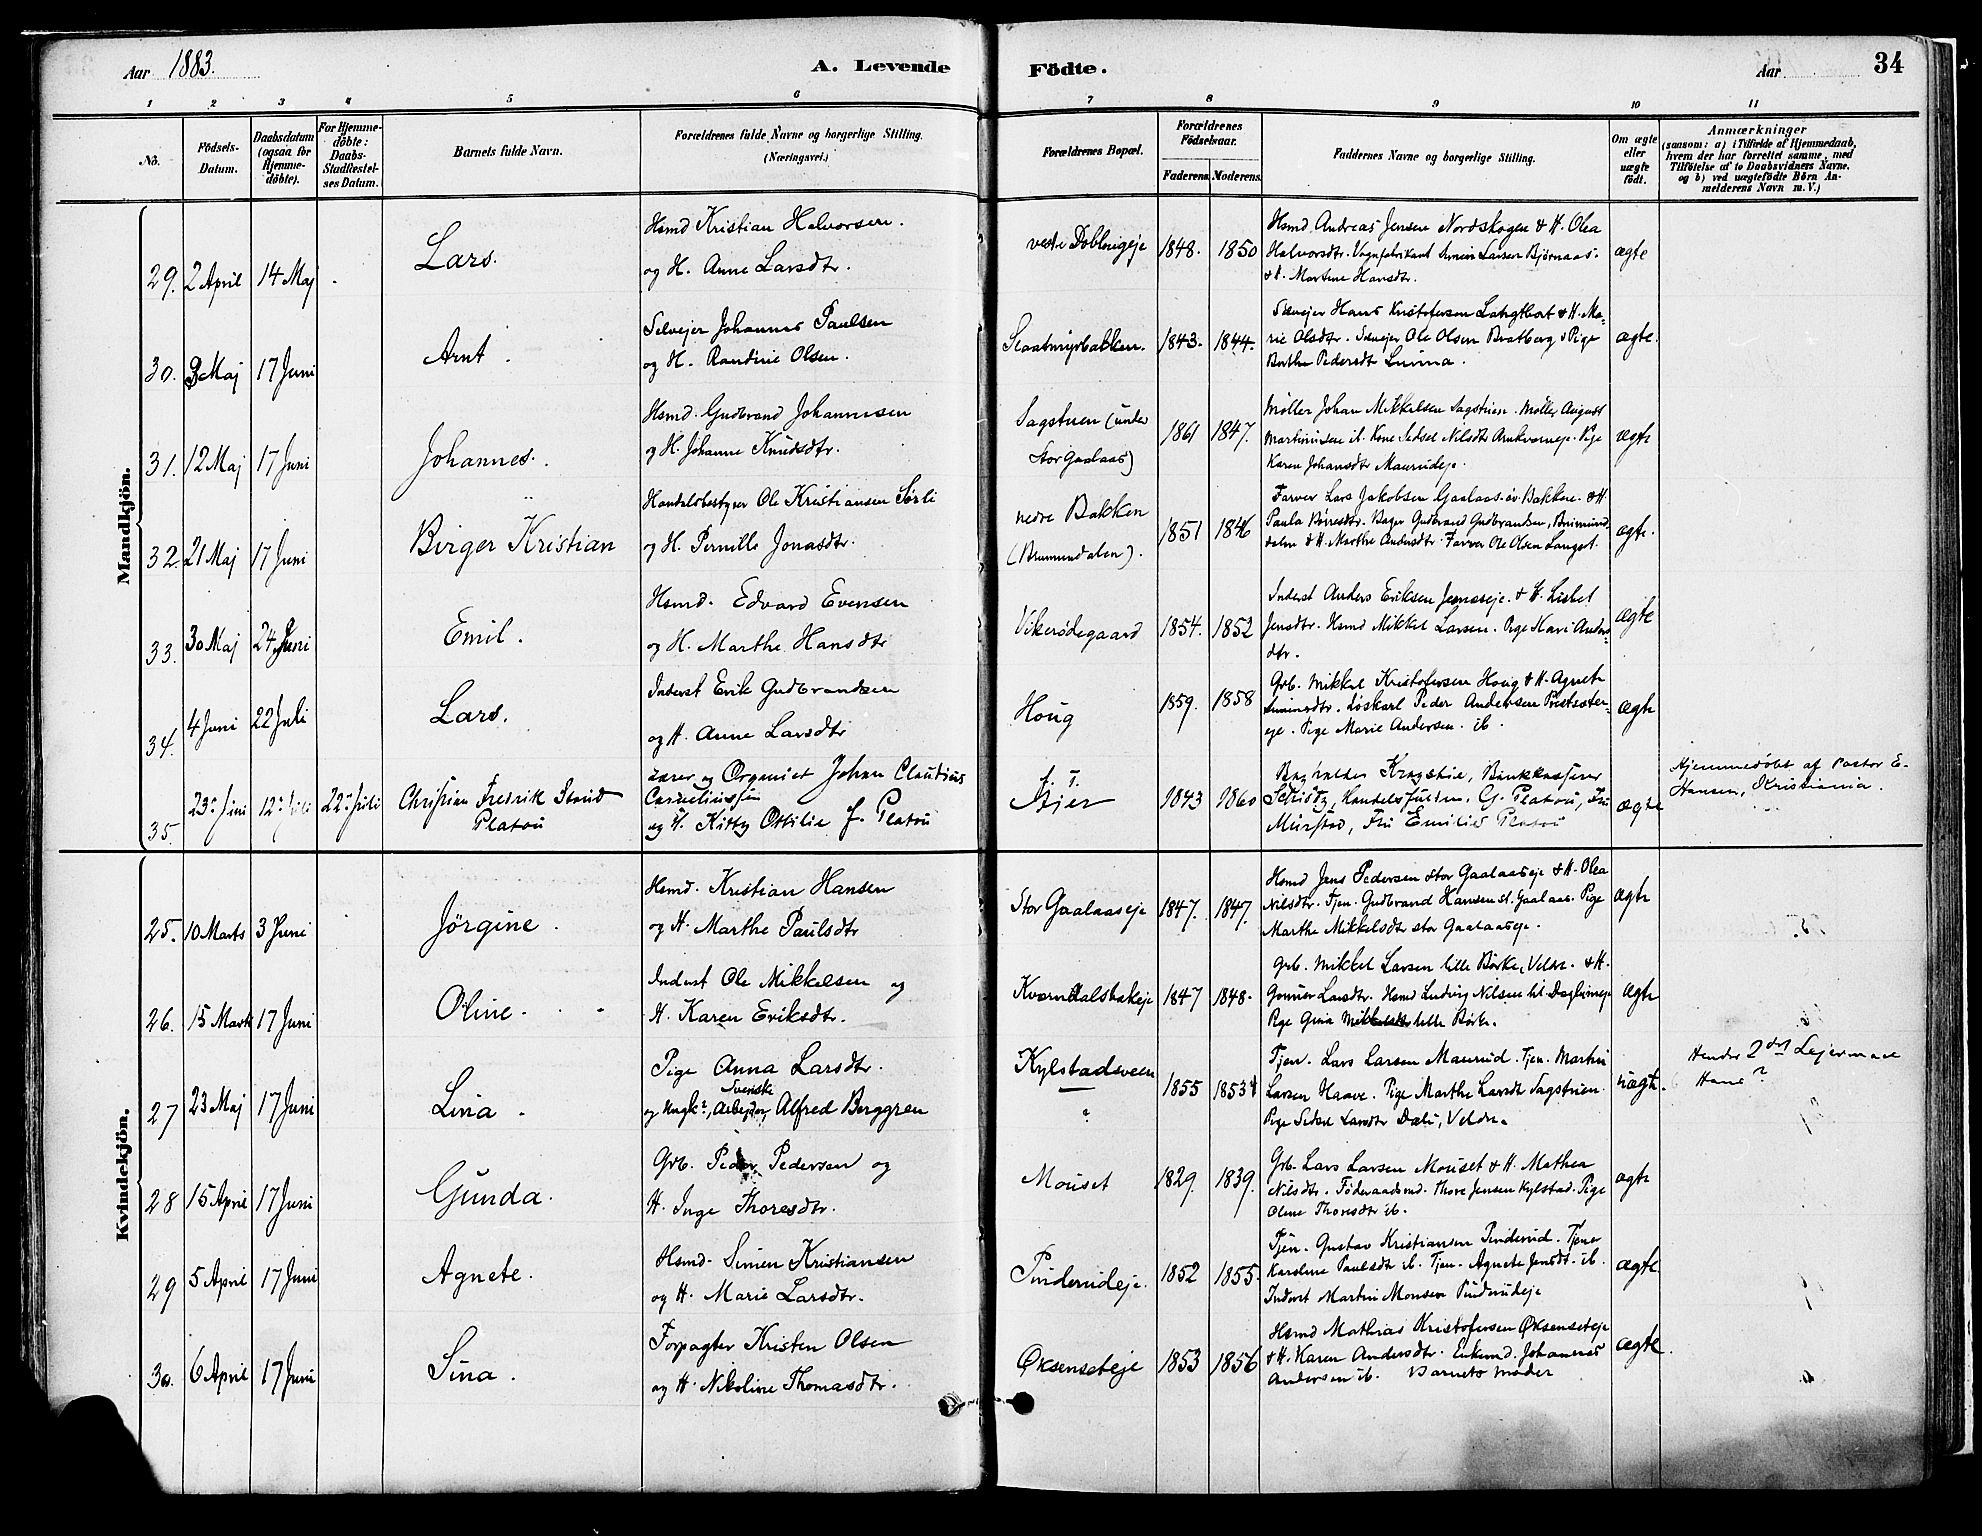 Aar 1883.
A. Levende Födte.
Aar
34
1 2 3 4 5 6 7 8 9 10 11
No.
Födsels-
Datum.
Daabsdatum
(ogsaa for
Hjemme-
döbte).
For Hjemme-
döbte:
Daabs-
Stadfæstel-
ses Datum.
Barnets fulde Navn.
Forældrenes fulde Navne og borgerlige Stilling.
(Næringsvei.)
Forældrenes Bopæl.
Forældrenes
Födselsaar.
Faderens. Moderens.
Faddernes Navne og borgerlige Stilling.
Om ægte
eller
uægte
födt.
Anmærkninger
(saasom: a) i Tilfælde af Hjemmedaab,
hvem der har forrettet samme, med
Tilföielse af to Daabsvidners Navne,
og b) ved uægtefödte Börn An-
melderens Navn m. V.)
Mandkjön.
29. 2 April 14 Maj Lars.
Hsmd Kristian Halvorsen.
og H. Anne Larsdtr.
1848. 1850
Hsmd Andreas Jensen Nordskogen & H. Olea
Halvorsdtr. Vognfabrikant Simen Larsen Bjørnaas.
& H. Martine Hansdtr.
ægte
30. 3 Maj 17 Juni Arnt.
Selvejer Johannes Paulsen
og H. Randine Olsen.
1843. 1844.
Selvejer Hans Kristofersen & H. Ma-
rie Olsdtr. Selvejer Ole Olsen Bratberg, Pige
Berthe Pedersdtr
ægte.
31. 12 Maj 17 Juni Johannes.
Hsmd. Gudbrand Johannesen
og H. Johanne Knudsdtr.
Sagstuen (under
Stor Gaalaas)
1861 1847.
Møller Johan Mikkelsen Sagstuen. Møller August
Martinusen ib. Kone Sidsel Nilsdtr Pige
Karen Johansdtr Maurudeje.
ægte
32. 21 Maj 17 Juni Birger Kristian
Handelsbestyrer Ole Kristiansen Sørli
og H. Pernille Jonasdtr.
nedre Bakken
(Brumunddalen).
1851 1846
Farver Lars Jakobsen Gaalaas øv. Bakken. & H.
Paula Børresdtr. Bager Gudbrand Gudbrandsen, Brumund
dalen & H. Marthe Andersdtr. Farver Ole Olsen
ægte.
33. 30 Maj 24 Juni Emil.
Hsmd. Edvard Evensen
og H. Marthe Hansdtr
Vikerødegaard
1854. 1852
Inderst Anders Eriksen Jemseje. & H. Lisbet
Jensdtr. Hsmd Mikkel Larsen. Pige Kari Anders-
dtr.
ægte
34. 4 Juni 22 Juli Lars.
Inderst Erik Gudbrandsen
og H. Anne Larsdtr
Houg
1859. 1858
Grb. Mikkel Kristofersen Houg & H. Agnete
Simensdtr. Løskarl Peder Andersen Prestsæter-
eje. Pige Marie Andersen. ib.
ægte
35. 23de Juni 12te Juli 22de Juli
Christian Fredrik Stoud
Platou
Lærer og Organist Johan Claudius
Corneliussen
og H. Kitty Ottilie f. Platou
Tjer
1843 1860
Bogholder Krogstie, Bankkasserer
Schiøtz, C. Platou, Fru
Mürstad, Fru Emilie Platou
ægte
Hjemmedøbt af Pastor E.
Hansen, Kristiania.
Kvindekjön.
25. 10 Marts 3 Juni Jörgine.
Hsmd. Kristian Hansen
og H. Marthe Paulsdtr
Stor Gaalaaseje
1847. 1847.
Hsmd Jens Pedersen stor Gaalaaseje & H. Olea
Nilsdtr. Tjen. Gudbrand Hansen st. Gaalaas. Pige
Marthe Mikkelsdtr stor Gaalaaseje.
ægte
26. 15 Marts 17 Juni Oline.
Inderst Ole Mikkelsen og
H. Karen Eriksdtr.
Kværndalsbakeje
1847 1848.
Grb. Mikkel Larsen lille Börke, Veldre. & H.
Larsdtr. Hsmd Ludvig Nilsen
Pige Gina Mikkelsdtr lille Börke.
ægte
27 23 Maj 17 Juni Lina.
Pige Anna Larsdtr.
og Ungk., Svenske Arbejder, Alfred Berggren
Kylstadsveen
1855 1853
Tjen. Lars Larsen Maurud. Tjen. Martin
Larsen Haave. Pige Marthe Larsdtr Sagstuen
Pige Sidsel Larsdtr Dæli, Veldre.
uægte.
Hendes 2det Lejermaal
Hans?
28 15 April 17 Juni Gunda.
Grb. Peder Pedersen og
H. Inge Thoresdtr.
Mouset
1829. 1839.
Grb. Lars Larsen Mouset & H. Mathea
Nilsdtr. Föderaadsmd. Thore Jensen Kylstad. Pige
Oline Thoresdtr ib.
ægte
29 5 April 17 Juni Agnete.
Hsmd. Simen Kristiansen
og H. Marie Larsdtr.
Pinderudeje.
1852 1855.
Tjen. Gustav Kristiansen Pinderud. Tjener
Karoline Paulsdtr ib. Tjen. Agnete Jensdtr. ib.
Inderst Martin Monsen Pinderudeje
ægte.
30. 6 April 17 Juni Sina.
Forpagter Kristen Olsen
og H. Nikoline Thomasdtr.
Øksenseteje
1853 1856
Hsmd Mathias Kristofersen Øksenseteje
& H. Karen Andersdtr. Enkemd. Johannes
Andersen ib. Barnets Moder
ægte.